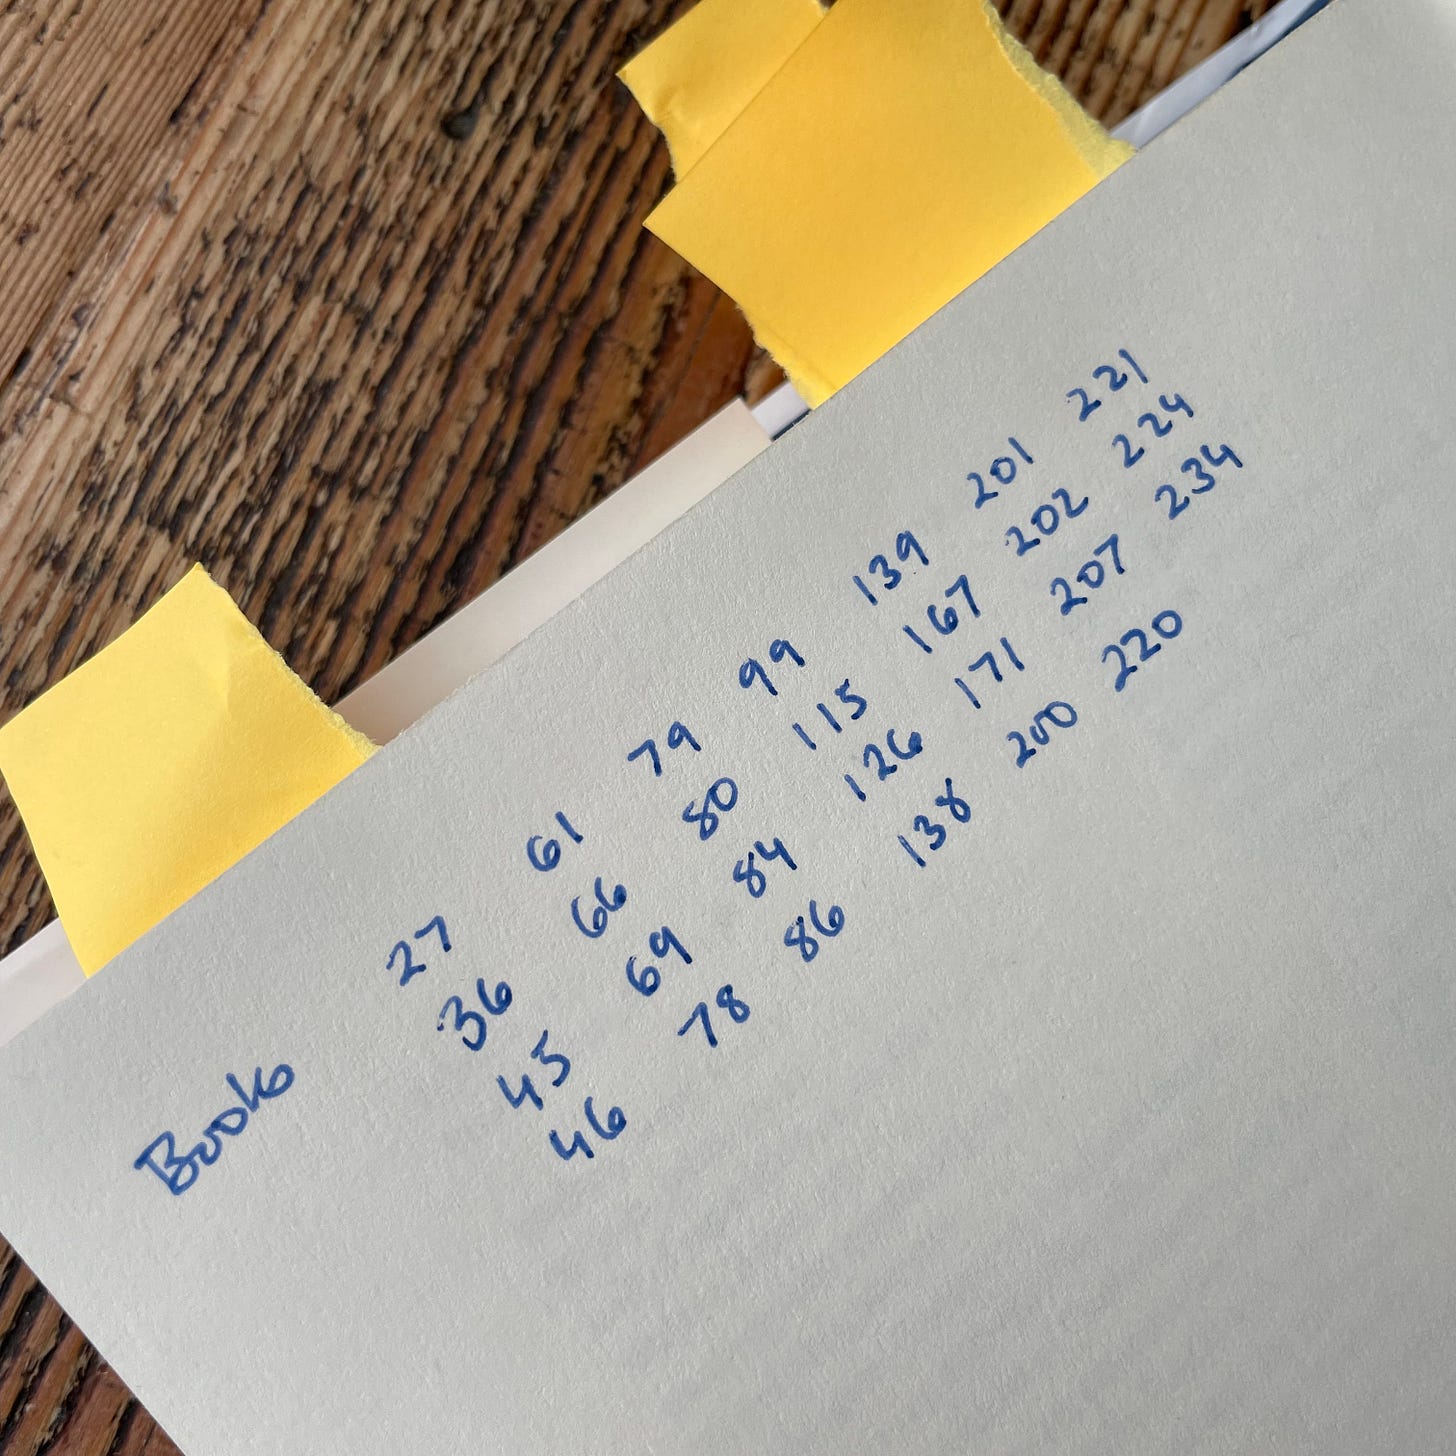 Book 27 61 79 99 139 201 221
36 66 80 115 167 202 224
45 69 84 126 171 207 234
46 78 86 138 200 220